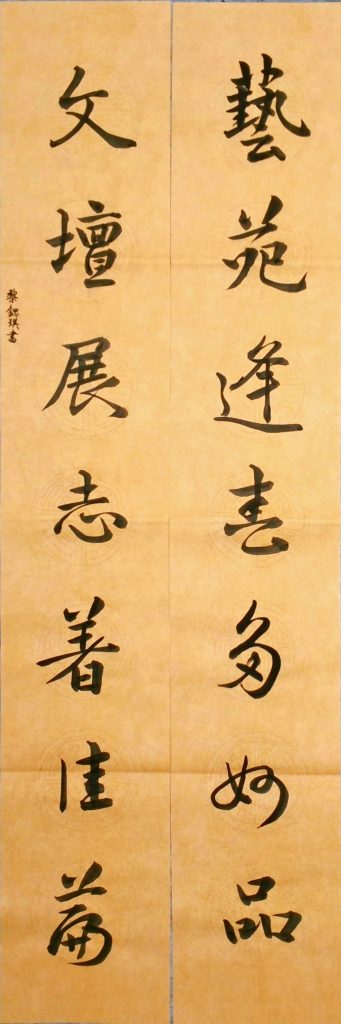 藝苑逢春多妙品
文壇展志著佳篇
黎鍶琪書